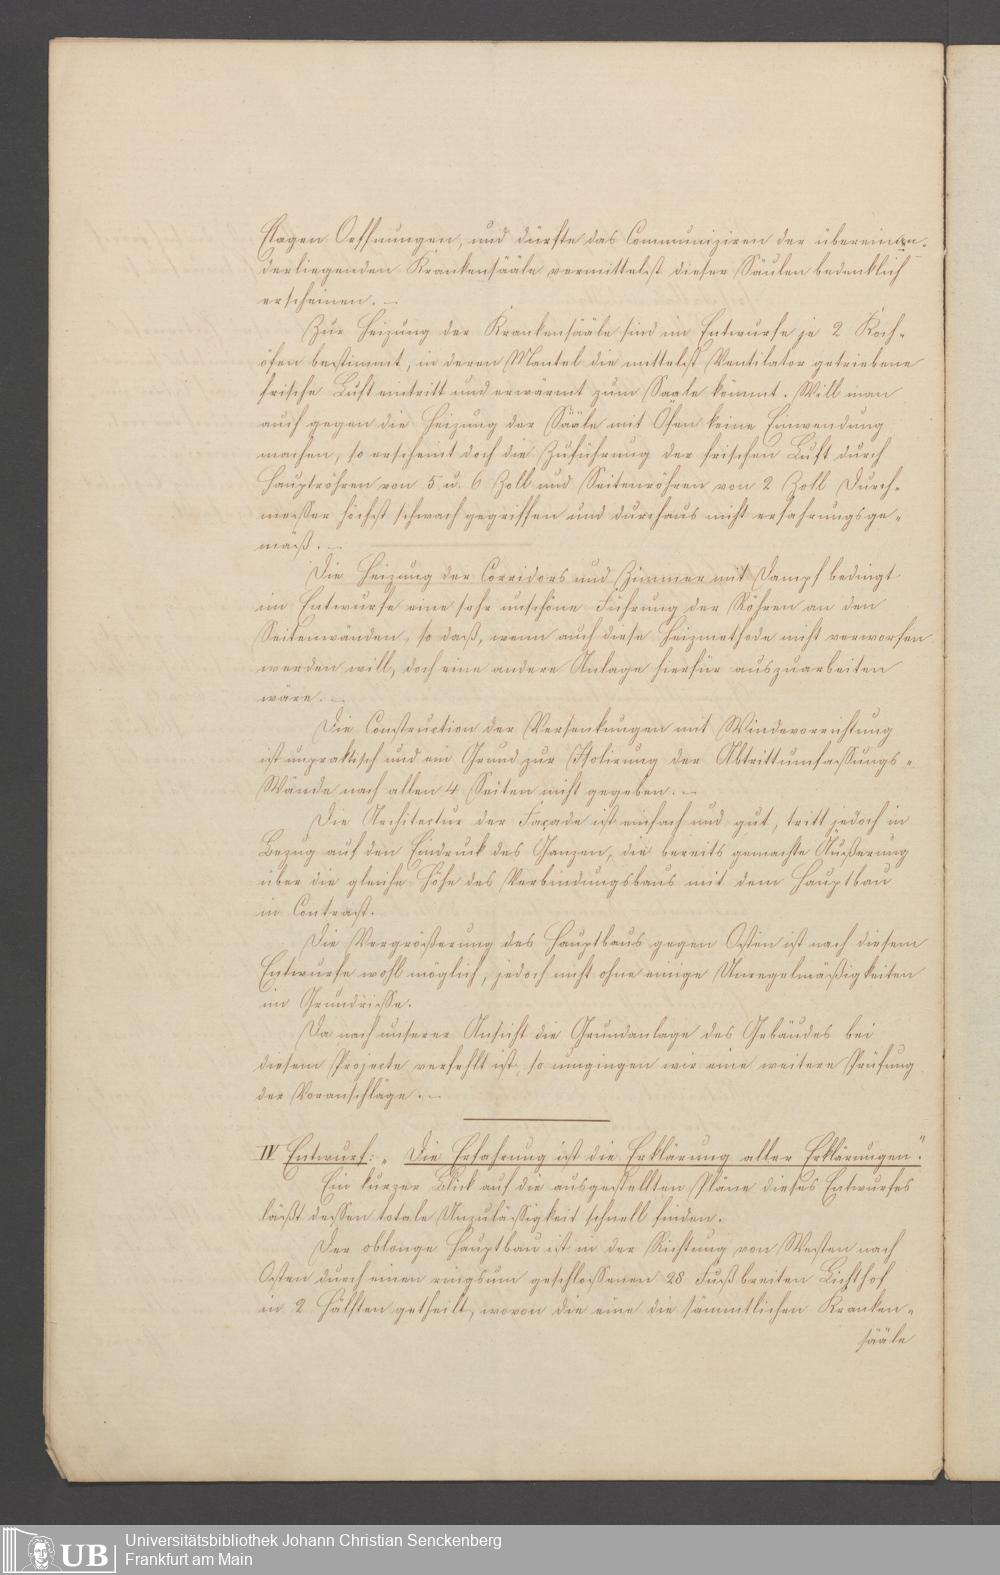 Etagen Oeffnungen, und dürfte das Communiziren der übereinan-
derliegenden Krankensääle vermittelst dieser Säulen bedenklich
erscheinen. —
Zur Heizung der Krankensääle sind im Entwurfe je 2 Koch-
öfen bestimmt, in deren Mantel die mittelst Ventilator getriebene
frische Luft eintritt und erwärmt zum Saale kömmt. Will man
auch gegen die Heizung der Sääle mit Öfen keine Einwendung
machen, so erscheint doch die Zuführung der frischen Luft durch
Hauptröhren von 5 u. 6 Zoll und Seitenröhren von 2 Zoll Durch-
messer höchst schwach gegriffen und durchaus nicht erfahrungsge-
mäß. —
Die Heizung der Corridors und Zimmer mit Dampf bedingt
im Entwurfe eine sehr unschöne Führung der Röhren an den
Seitenwänden, so daß, wenn auch diese Heizmethode nicht verworfen
werden will, doch eine andere Anlage hierfür auszuarbeiten
wäre. —
Die Construction der Versenkungen mit Windevorrichtung
ist unpraktisch und ein Grund zur Isolirung der Abtrittumfassungs-
Wände nach allen 4 Seiten nicht gegeben. —
Die Architectur der Façade ist einfach und gut, tritt jedoch in
Bezug auf den Eindruck des Ganzen, die bereits gemachte Äußerung
über die gleiche Höhe des Verbindungsbaus mit dem Hauptbau
in Contrast.
Die Vergrößerung des Hauptbaus gegen Osten ist nach diesem
Entwurfe wohl möglich, jedoch nicht ohne einige Unregelmäßigkeiten
im Grundrisse.
Da nach unserer Ansicht die Grundanlage des Gebäudes bei
diesem Projecte verfehlt ist, so umgingen wir eine weitere Prüfung
der Voranschläge. —
IV Entwurf: „Die Erfahrung ist die Erklärung aller Erklärungen".
Ein kurzer Blick auf die ausgestellten Pläne dieses Entwurfes
läßt dessen totale Unzulässigkeit schnell finden.
Der oblonge Hauptbau ist in der Richtung von Westen nach
Osten durch einen ringsum geschlossenen 28 Fuß breiten Lichthof
in 2 Hälften getheilt, wovon die eine die sämmtlichen Kranken-
sääle
UB
Universitätsbibliothek Johann Christian Senckenberg
Frankfurt am Main